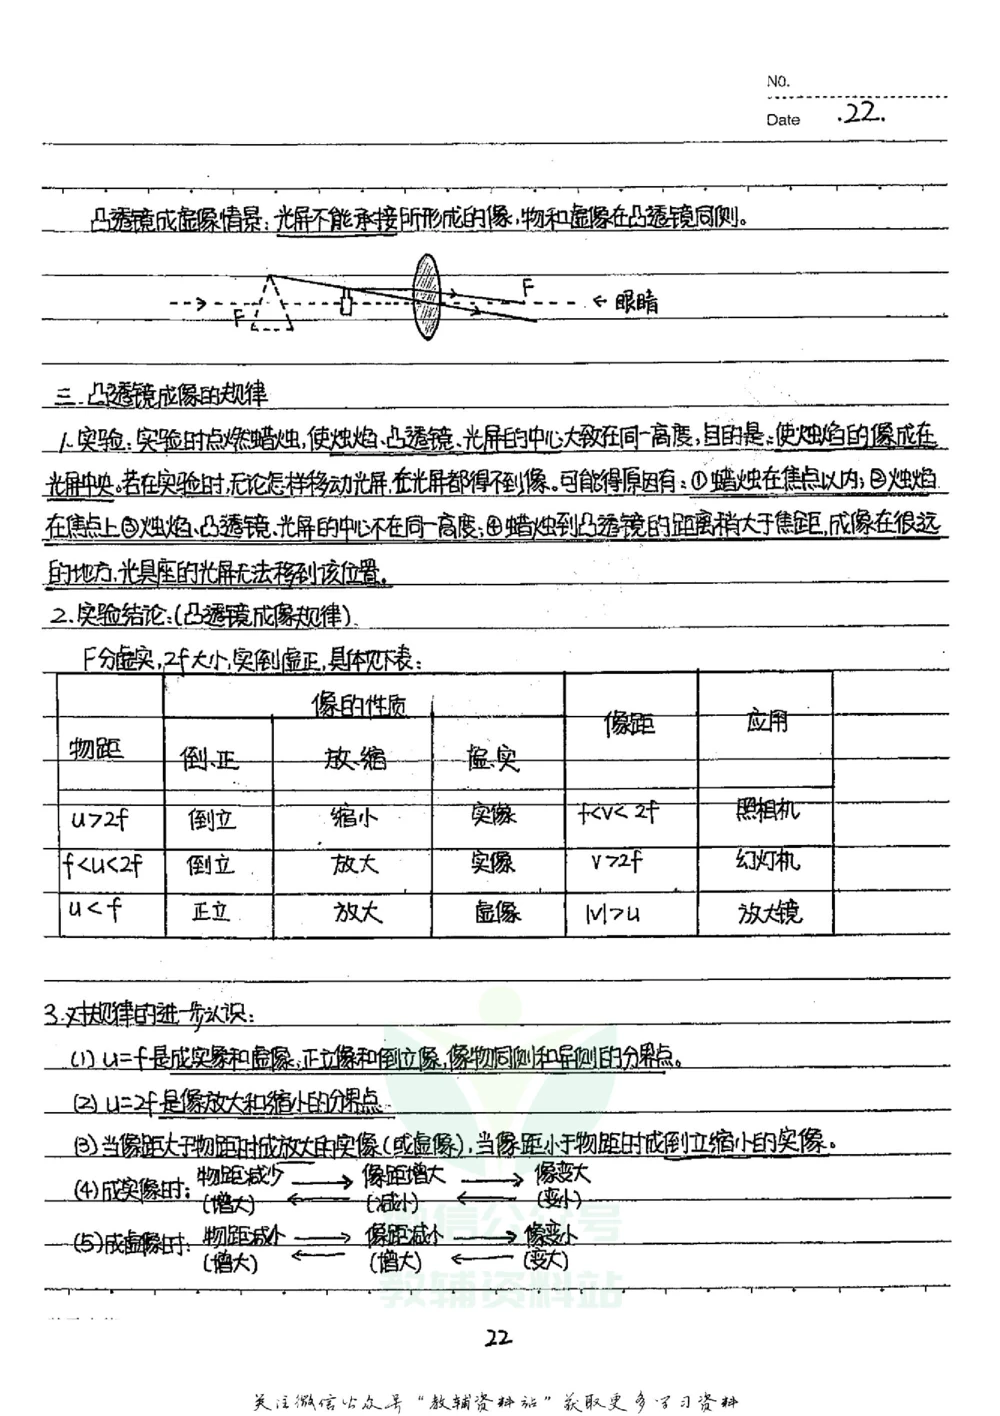 NO.
Date .22.
凸透镜成虚像情景:光屏不能承接所形成的像,物和虚像在凸透镜同侧。
F
F
眼睛
三.凸透镜成像的规律
1.实验:实验时点燃蜡烛,使烛焰、凸透镜、光屏的中心大致在同一高度,目的是:使烛焰的像成在
光屏中央。若在实验时,无论怎样移动光屏,在光屏都得不到像。可能得原因有:①蜡烛在焦点以内;②烛焰
在焦点上③烛焰、凸透镜、光屏的中心不在同一高度;④蜡烛到凸透镜的距离稍大于焦距,成像在很远
的地方,光具座的光屏无法移到该位置。
2.实验结论:(凸透镜成像规律)
F分虚实,2f大小,实倒虚正,具体见下表:
物距 像的性质 像距 应用
倒、正 放、缩 虚、实
u>2f 倒立 缩小 实像 f<v<2f 照相机
f<u<2f 倒立 放大 实像 v>2f 幻灯机
u<f 正立 放大 虚像 |v|>u 放大镜
3.对规律的进一步认识:
(1) u=f是成实象和虚象,正立像和倒立像,像物同侧和异侧的分界点。
(2) u=2f是像放大和缩小的分界点
(3)当像距大于物距时成放大的实像(或虚像),当像距小于物距时成倒立缩小的实像。
(4)成实像时: 物距减少 → 像距增大 → 像变大
(增大) ← (减小) ← (变小)
(5)成虚像时: 物距减小 → 像距减小 → 像变小
(增大) ← (增大) ← (变大)
微信公众号
教辅资料站
22
关注微信公众号“教辅资料站”获取更多学习资料